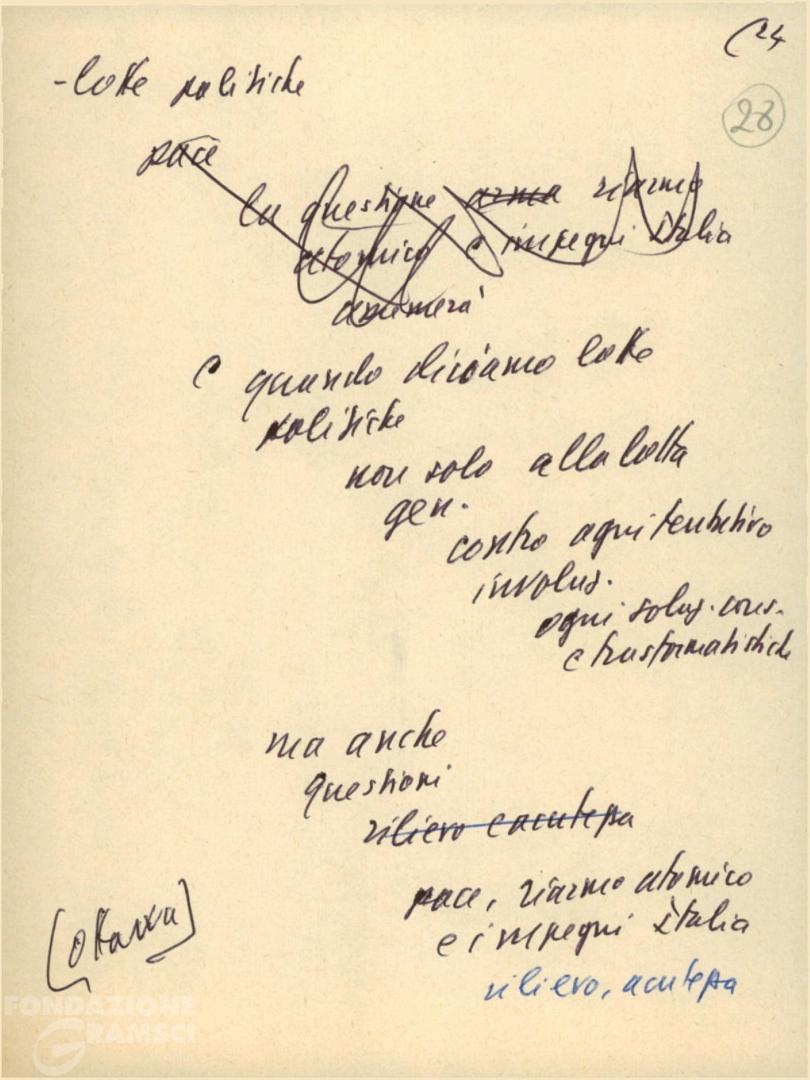 (24
28
- lotte politiche
pace
la questione arma riarmo
atomico e impegni Italia
e quando diciamo lotte
politiche
non solo alla lotta
gen.
contro ogni tentativo
involuz.
ogni soluz. cons.
e trasformatistiche
ma anche
questioni
rilievo e acutezza
pace, riarmo atomico
e impegni Italia
rilievo, acutezza
[Ottawa]
FONDAZIONE
GRAMSCI